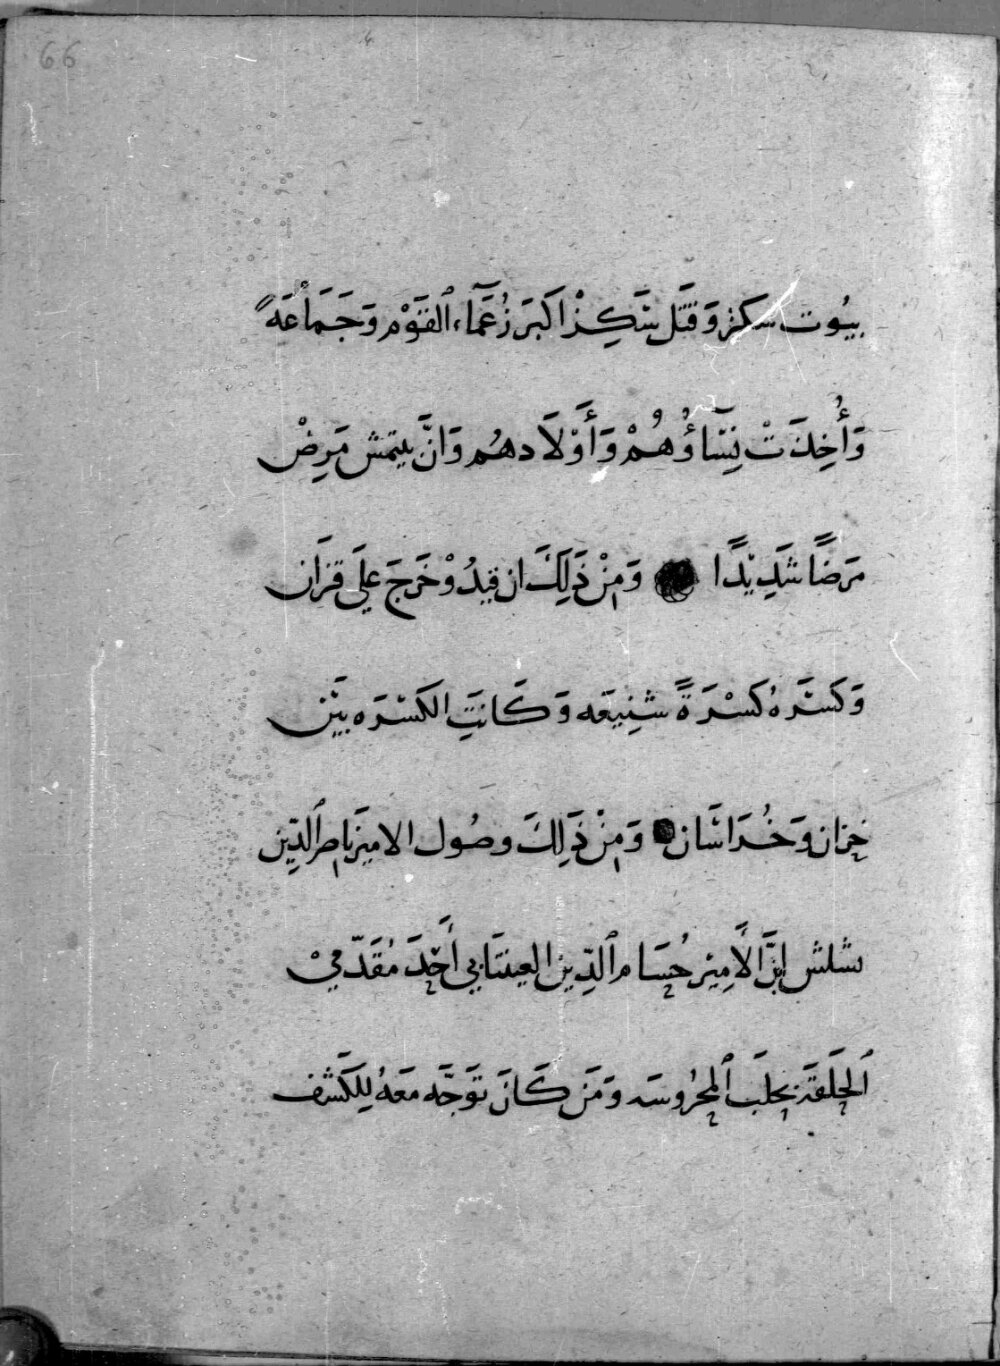 66
بيُوت سكز وَقتَل سَكِزْ اكبَر زُعَمَآء ٱلقَوْم وَجَمَاعَةً
وَأُخِذَتْ نِسَآؤُهُمْ وَأَوْلَادهُم وَانَّ يتمش مَرِضْ
مَرَضًا شَدِيْدًا وَمِنْ ذَلِكَ ان قيدُوْ خَرجَ عَلَى قزَان
وَكسَرَهُ كسْرَةً شنِيعَه وَكَانَتِ الكسْرَه بَيْن
خزان وَخُرَاسَان وَمِنْ ذَلِكَ وصُول الامير ناصر ٱلدِّين
شلش ابْنَ الَامِيْر حُسَام ٱلدِّين العينتَابي أَحَدَ مُقَدّميْ
ٱلحَلَقَة بحلَبَ ٱلمحرُوسَه وَمَن كَانَ توَجَّه معَهُ لِلكَشف